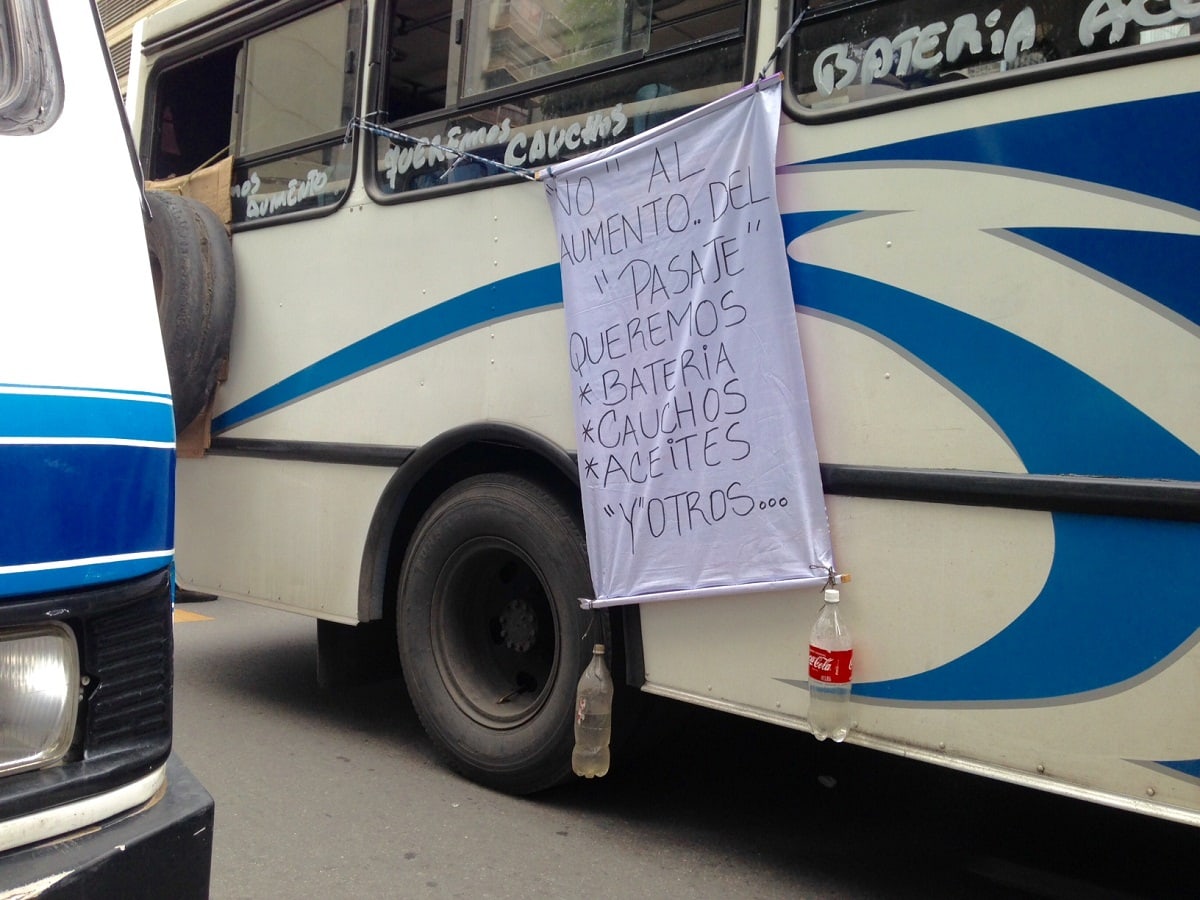 MOS
AUMENTO
QUEREMOS CAUCHOS
BATERiA ACE
"NO" AL
AUMENTO.. DEL
"PASAJE"
QUEREMOS
*BATERiA
*CAUCHOS
*ACEiTES
"Y" OTROS...
Coca-Cola